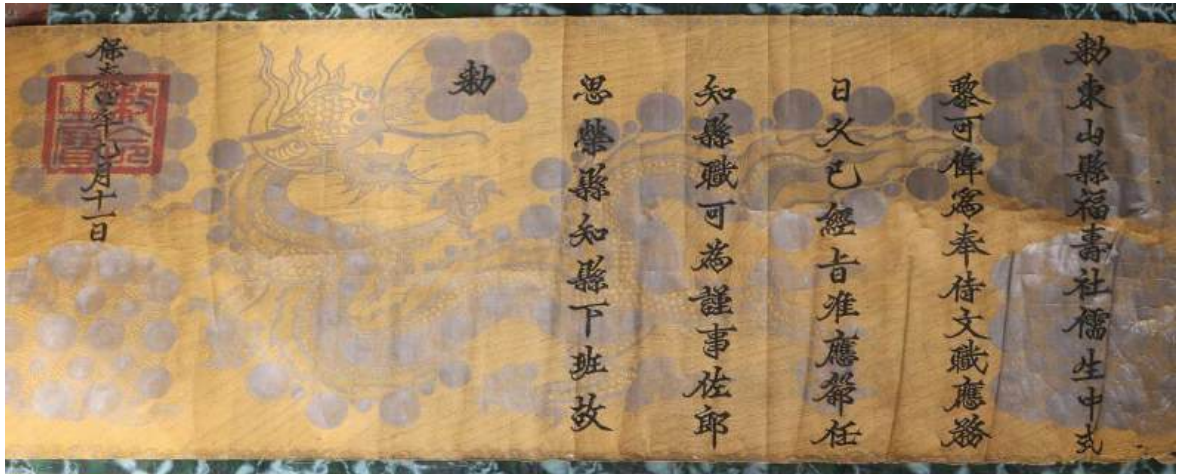 勅東山縣福壽社儒生中式
黎可偉為奉侍文職應務
日久已經旨准應部任
知縣職可為謹事佐郎
思榮縣知縣下班故
勅
保泰四年七月十一日